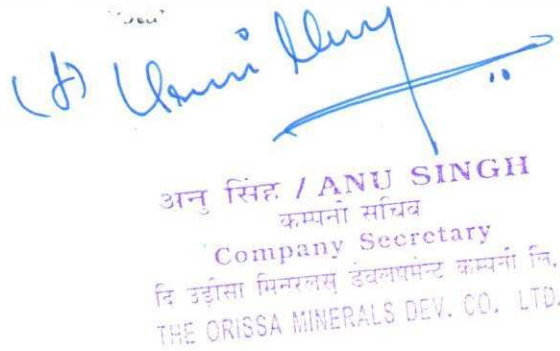 अनु सिंह / ANU SINGH
कम्पनी सचिव
Company Secretary
दि उड़ीसा मिनरलस् डेवलपमेन्ट कम्पनी लि.
THE ORISSA MINERALS DEV. CO. LTD.